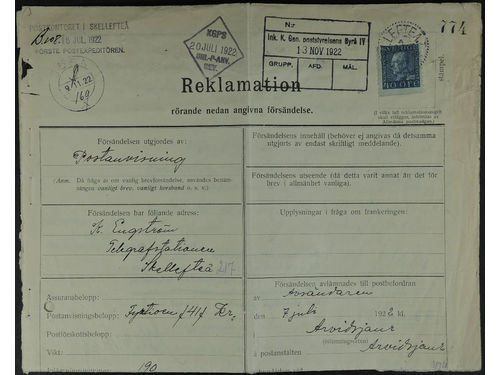 POSTKONTORET I SKELLEFTEÅ
18 JUL. 1922
FÖRSTE POSTEXPEDITÖREN.
KGPS
20 JULI 1922
REV.
N:r
Ink. K. Gen. poststyrelsens Byrå IV
13 NOV 1922
GRUPP. AFD. MÅL.
774
LEFTEÅ
40 ÖRE
stämpel.
9.11.22
169
Reklamation
rörande nedan angivna försändelse.
Försändelsen utgjordes av:
Postanvisning
(Anm. Då fråga är om vanlig brevförsändelse, användes benäm-
ningen vanligt brev, vanligt korsband o. s. v.)
Försändelsens innehåll (behöver ej angivas då detsamma
utgjorts av endast skriftligt meddelande).
Försändelsens utseende (då detta varit annat än det för
brev i allmänhet vanliga).
Försändelsen har följande adress:
K. Engström
Telegrafstationen
Skellefteå 217
Upplysningar i fråga om frankeringen:
Assuransbelopp:
Postanvisningsbelopp: Fyrtioen /41/ Kr.
Postförskottsbelopp:
Vikt:
190
Försändelsen avlämnades till postbefordran
av Avsändaren
den 7 juli 1922 kl.
Arvidsjaur
å postanstalten Arvidsjaur